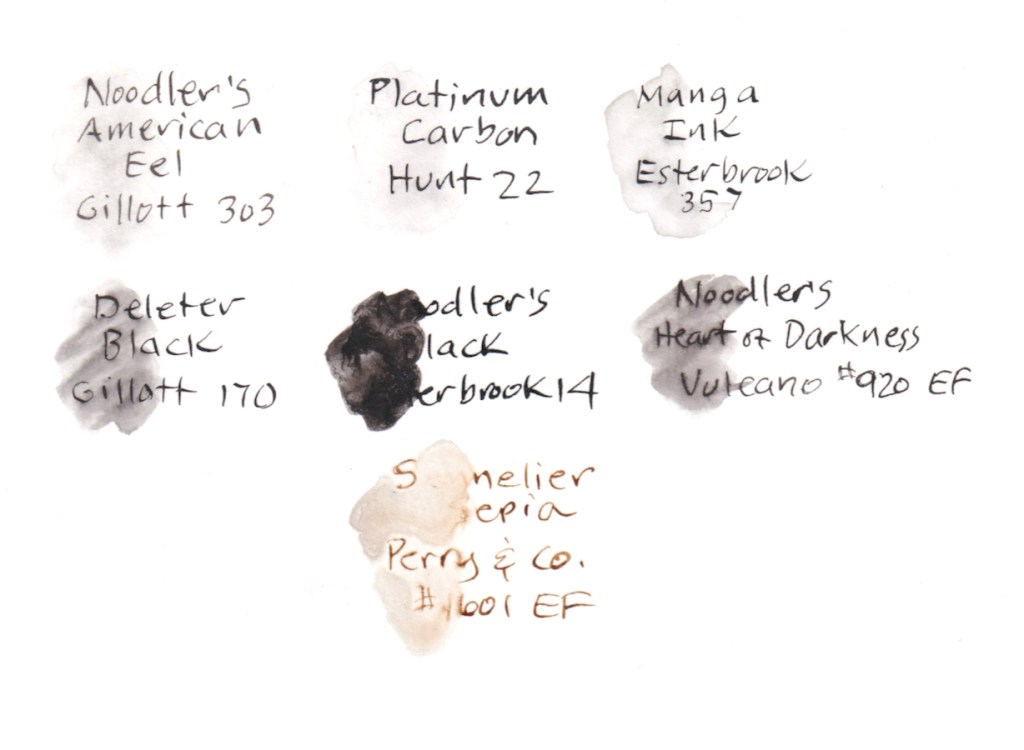 Noodler's
American
Eel
Gillott 303
Platinum
Carbon
Hunt 22
Manga
Ink
Esterbrook
357
Deleter
Black
Gillott 170
odler's
lack
erbrook 14
Noodler's
Heart of Darkness
Vulcano #920 EF
S melier
epia
Perry & Co.
#1601 EF